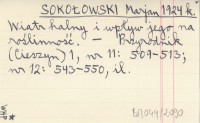 SOKOŁOWSKI Marjan 1924 r.
Wiatr halny i wpływ jego na
roślinność. — Przyrodnik
(Cieszyn) 1, nr 11: 509-513;
nr 12: 543-550, il.